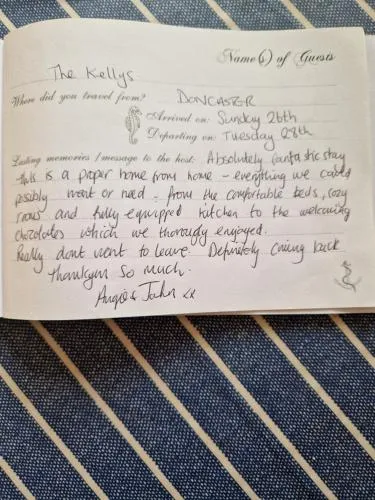 Name(s) of Guests
The Kellys
Where did you travel from? DONCASTER
Arrived on: Sunday 26th
Departing on: Tuesday 28th
Lasting memories / message to the host: Absolutely fantastic stay
this is a proper home from home - everything we could
possibly want or need - from the comfortable beds, cozy
rooms and fully equipped kitchen to the welcoming
chocolates which we thoroughly enjoyed.
Really dont want to leave. Definitely coming back
Thankyou so much.
Angie & John xx